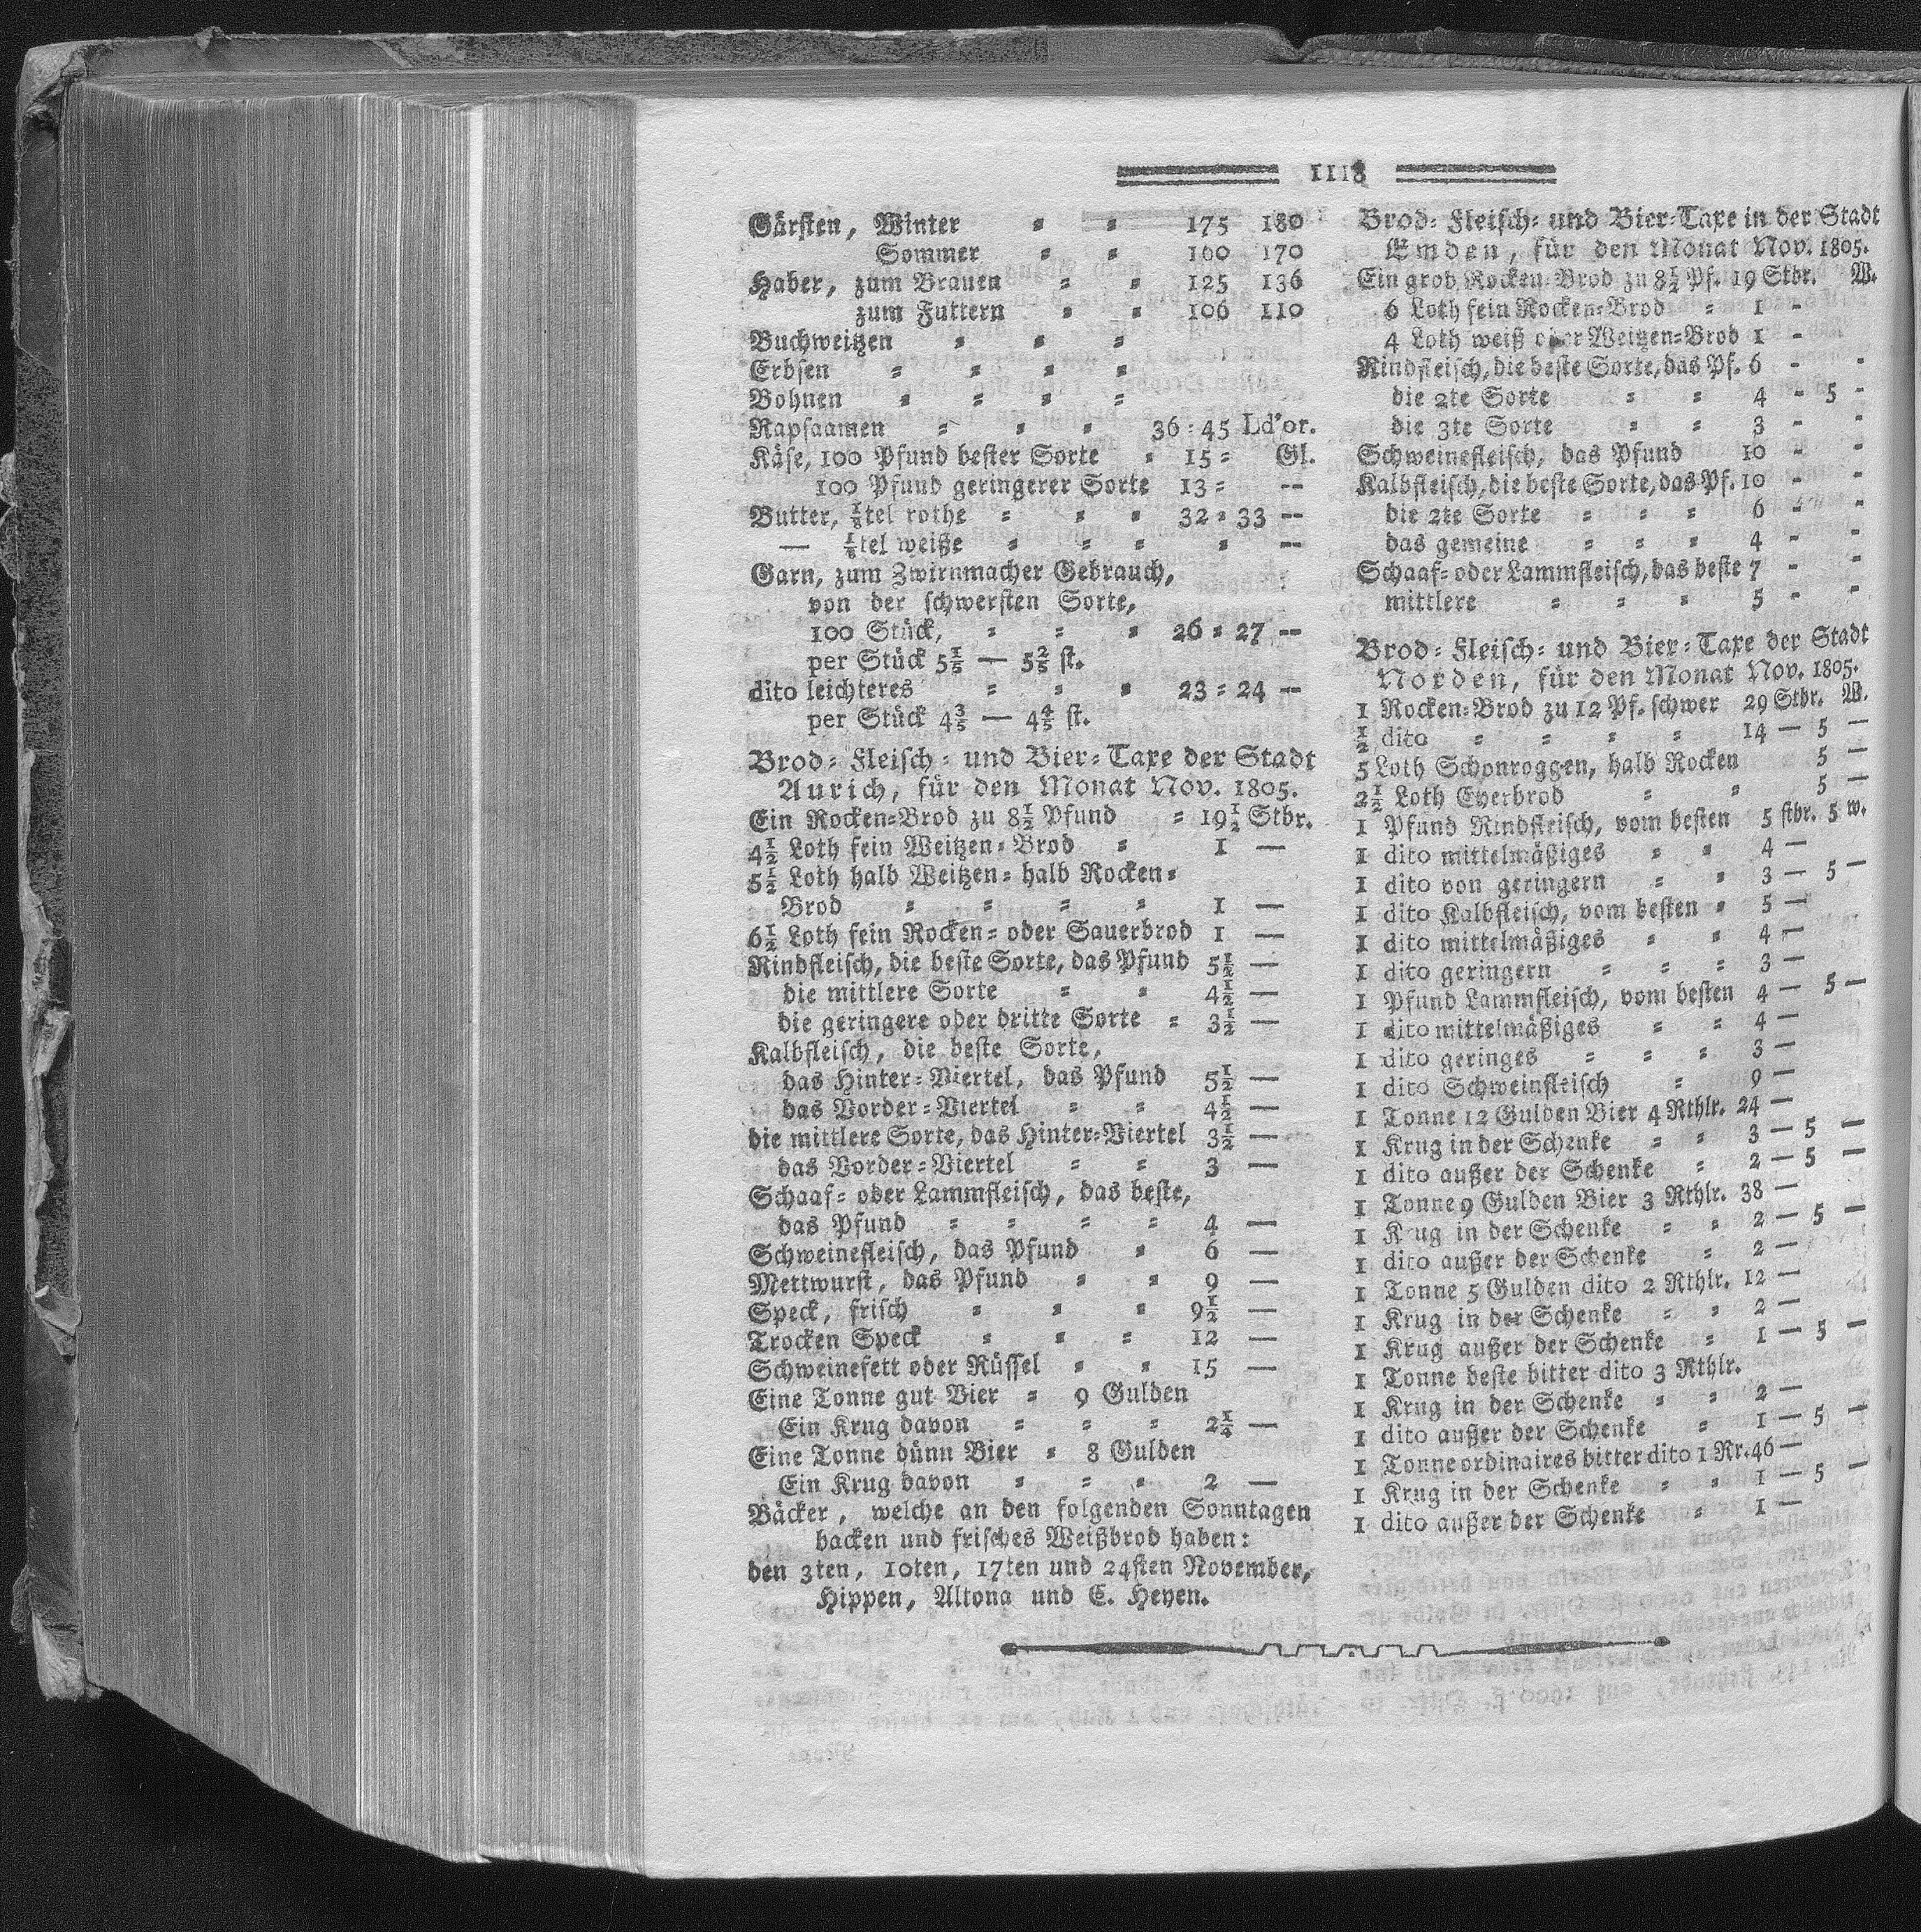 1118
Gärsten, Winter = = 175 180
Sommer = = 160 170
Haber, zum Brauen = = 125 136
zum Futtern = = 106 110
Buchweitzen = = =
Erbsen = = = =
Bohnen = = = =
Rapsaamen = = = 36 = 45 Ld'or.
Käse, 100 Pfund bester Sorte = 15 = Gl.
100 Pfund geringerer Sorte 13 = --
Butter, ⅛tel rothe = = = 32 = 33 --
— ⅛tel weiße = = = = --
Garn, zum Zwirnmacher Gebrauch,
von der schwersten Sorte,
100 Stück, = = = 26 = 27 --
per Stück 5⅕ — 5⅖ st.
dito leichteres = = = 23 = 24 --
per Stück 4⅗ — 4⅘ st.
Brod= Fleisch= und Bier=Taxe der Stadt
Aurich, für den Monat Nov. 1805.
Ein Rocken=Brod zu 8½ Pfund = 19½ Stbr.
4½ Loth fein Weitzen=Brod = 1 —
5½ Loth halb Weitzen= halb Rocken=
Brod = = = = 1 —
6½ Loth fein Rocken= oder Sauerbrod 1 —
Rindfleisch, die beste Sorte, das Pfund 5½ —
die mittlere Sorte = = 4½ —
die geringere oder dritte Sorte = 3½ —
Kalbfleisch, die beste Sorte,
das Hinter=Viertel, das Pfund 5½ —
das Vorder=Viertel = = 4½ —
die mittlere Sorte, das Hinter=Viertel 3½ —
das Vorder=Viertel = = 3 —
Schaaf= oder Lammfleisch, das beste,
das Pfund = = = = 4 —
Schweinefleisch, das Pfund = 6 —
Mettwurst, das Pfund = = 9 —
Speck, frisch = = = 9½ —
Trocken Speck = = = 12 —
Schweinefett oder Rüssel = = 15 —
Eine Tonne gut Bier = 9 Gulden
Ein Krug davon = = = 2¼ —
Eine Tonne dünn Bier = 8 Gulden
Ein Krug davon = = = 2 —
Bäcker, welche an den folgenden Sonntagen
backen und frisches Weißbrod haben:
den 3ten, 10ten, 17ten und 24sten November,
Hippen, Altona und C. Heyen.
Brod= Fleisch= und Bier=Taxe in der Stadt
Emden, für den Monat Nov. 1805.
Ein grob Rocken=Brod zu 8½ Pf. 19 Stbr. W.
6 Loth fein Rocken=Brod = 1 -
4 Loth weiß oder Weitzen=Brod 1 -
Rindfleisch, die beste Sorte, das Pf. 6 - -
die 2te Sorte = = 4 - 5 -
die 3te Sorte = = 3 - -
Schweinefleisch, das Pfund 10 - -
Kalbfleisch, die beste Sorte, das Pf. 10 - -
die 2te Sorte = = = 6 - -
das gemeine = = = 4 - -
Schaaf= oder Lammfleisch, das beste 7 - -
mittlere = = = 5 - -
Brod= Fleisch= und Bier=Taxe der Stadt
Norden, für den Monat Nov. 1805.
1 Rocken=Brod zu 12 Pf. schwer 29 Stbr. W.
½ dito = = = = 14 — 5 —
5 Loth Schonroggen, halb Rocken 5 —
2½ Loth Eyerbrod = = 5 —
1 Pfund Rindfleisch, vom besten 5 stbr. 5 w.
1 dito mittelmäßiges = = 4 —
1 dito von geringern = = 3 — 5 —
1 dito Kalbfleisch, vom besten = 5 —
1 dito mittelmäßiges = = 4 —
1 dito geringern = = = 3 —
1 Pfund Lammfleisch, vom besten 4 — 5 —
1 dito mittelmäßiges = = 4 —
1 dito geringes = = = 3 —
1 dito Schweinfleisch = 9 —
1 Tonne 12 Gulden Bier 4 Rthlr. 24 —
1 Krug in der Schenke = = 3 — 5 —
1 dito außer der Schenke = 2 — 5 —
1 Tonne 9 Gulden Bier 3 Rthlr. 38 —
1 K ug in der Schenke = = 2 — 5 —
1 dito außer der Schenke = 2 —
1 Tonne 5 Gulden dito 2 Rthlr. 12 —
1 Krug in der Schenke = = 2 —
1 Krug außer der Schenke = 1 — 5 —
1 Tonne beste bitter dito 3 Rthlr.
1 Krug in der Schenke = = 2 —
1 dito außer der Schenke = 1 — 5 —
1 Tonne ordinaires bitter dito 1 Rr. 46 —
1 Krug in der Schenke = = 1 — 5 —
1 dito außer der Schenke = 1 —